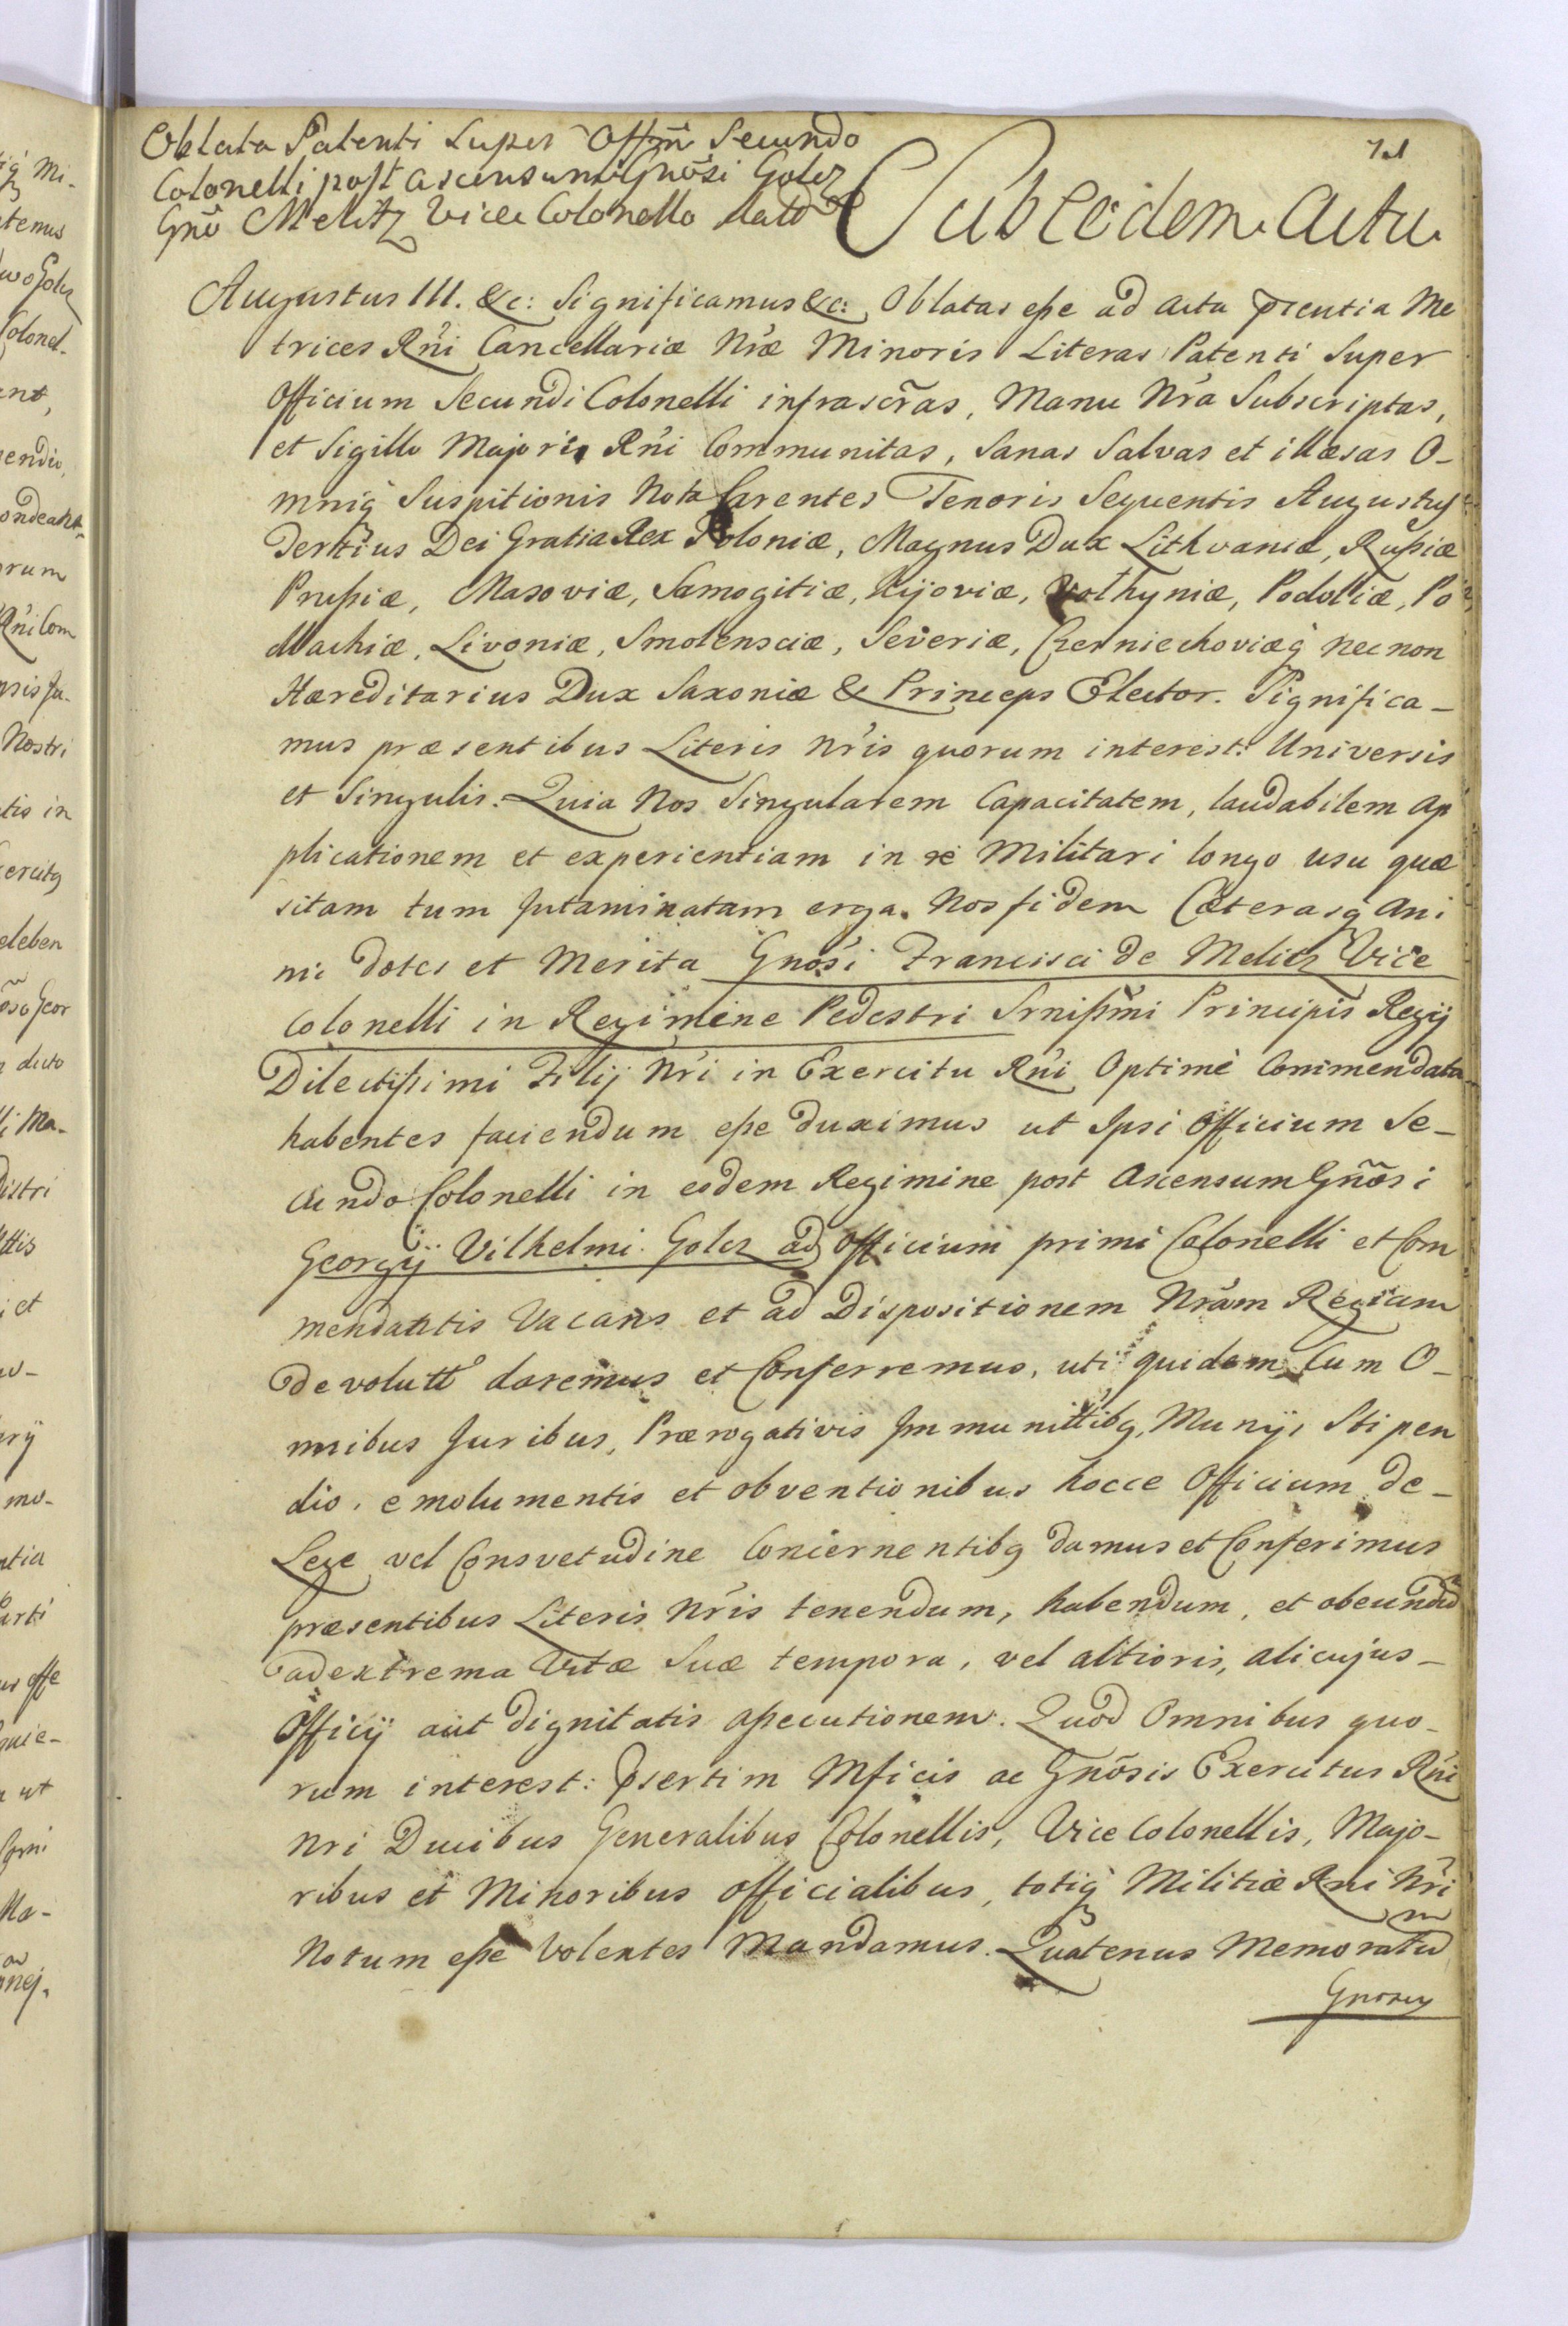 Oblata Patenti Super Offm̃ Secundo
Colonelli post ascensum Gnõsi Golcz
Gnõ Melitz Vice Colonello dato
Sub eodem Actu
Augustus III. &c: Significamus &c: Oblatas eße ad Acta prẽntia Me
trices Rñi Cancellariæ Nræ Minoris Literas Patenti Super
Officium Secundi Colonelli infrascr̃as, Manu Nrã Subscriptas,
et Sigillo Majoris Rñi Communitas, Sanas Salvas et illæsas O-
mniq̃ Suspitionis Nota Carentes Tenoris Sequentis Augustus
Tertius Dei Gratia Rex Poloniæ, Magnus Dux Lithvaniæ, Rußiæ
Prußiæ, Masoviæ, Samogitiæ, Kijoviæ, Volhyniæ, Podoliæ, Po
dlachiæ, Livoniæ, Smolensciæ, Severiæ, Czerniechoviæq̃ nec non
Hæreditarius Dux Saxoniæ & Princeps Elector. Significa-
mus præsentibus Literis nr̃is quorum interest: Universis
et Singulis. Quia Nos Singularem Capacitatem, laudabilem Ap
plicationem et experientiam in re Militari longo usu quæ
sitam tum Intaminatam erga Nos fidem Cæterasq̃ Ani
mi dotes et Merita Gnõsi Francisci de Melitz Vice
Colonelli in Regimine Pedestri Srnißmi Principis Regij
Dilectißimi Filij Nr̃i in Exercitu Rñi Optimè Commendata
habentes faciendum eße duximus ut Ipsi Officium Se-
cundo Colonelli in eodem Regimine post Ascensum Gnõsi
Georgÿ Vilhelmi Golcz ad Officium primi Colonelli et Com
mendantis Vacans et ad Dispositionem Nrãm Regiam
devolutt̃ daremus et Conferremus, uti quidem Cum O-
mnibus Juribus, Prærogativis Immunittibq̃, Munijs Stipen
dio, emolumentis et obventionibus hocce Officium de-
Lege vel Consvetudine Concernentibq̃ damus et Conferimus
præsentibus Literis Nr̃is tenendum, habendum, et obeundũ
ad extrema Vitæ Suæ tempora, vel altioris, alicujus-
Officÿ aut dignitatis aßecutionem. Quod Omnibus quo-
rum interest: prsertim Mficis ac Gnõsis Exercitus Rñi
Nri Ducibus Generalibus Colonellis, Vice Colonellis, Majo-
ribus et Minoribus officialibus, totiq̃ Militiæ Rñi Nr̃i
Notum eße Volentes Mandamus. Quatenus Memoratũ
Gnosum